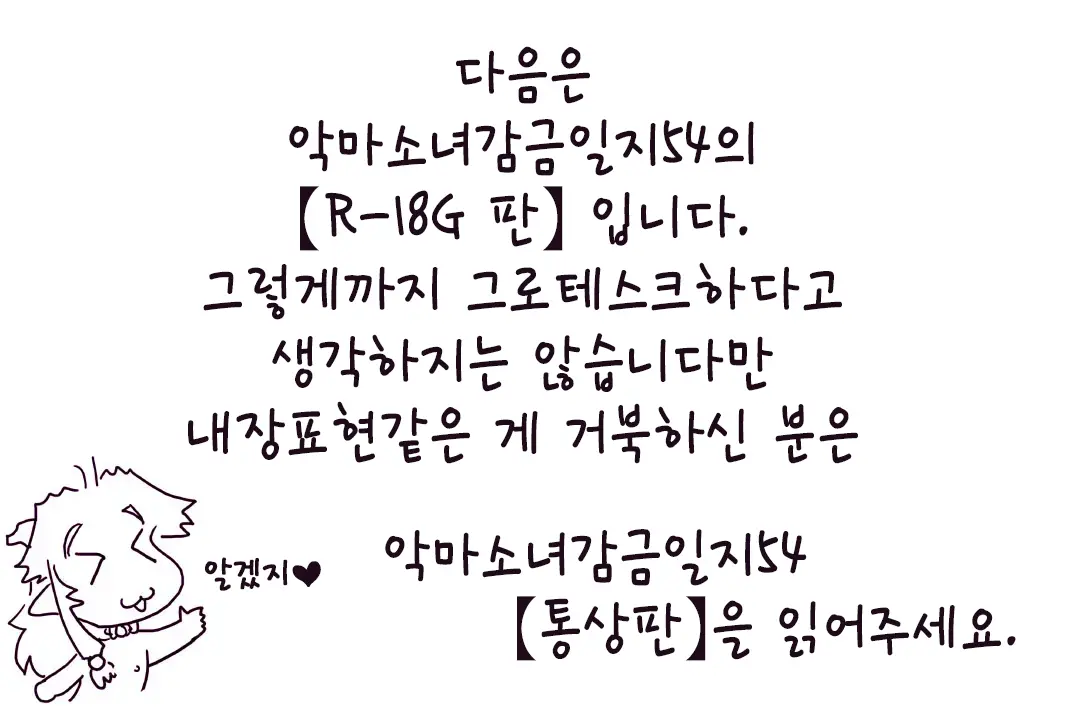 다음은
악마소녀감금일지54의
【R-18G 판】 입니다.
그렇게까지 그로테스크하다고
생각하지는 않습니다만
내장표현같은 게 거북하신 분은
알겠지♥
악마소녀감금일지54
【통상판】을 읽어주세요.